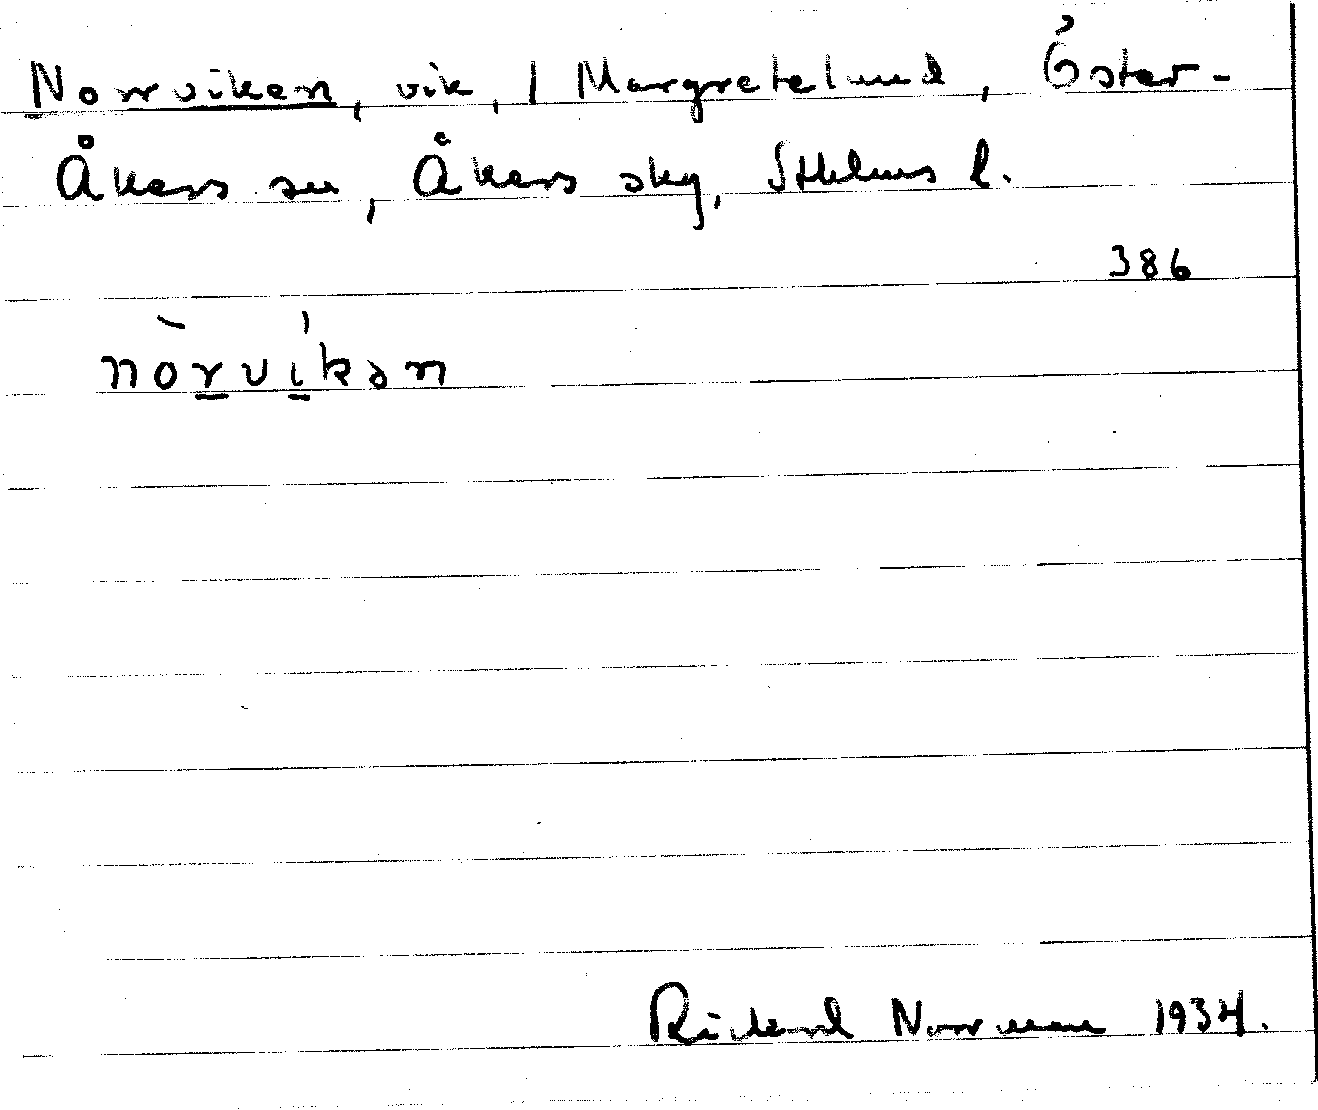 Norrviken, vik, / Margretelund, Öster-
Åkers sn, Åkers sky, Sthlms l.
386
nòrvíkən
Rickard Norrman 1934.